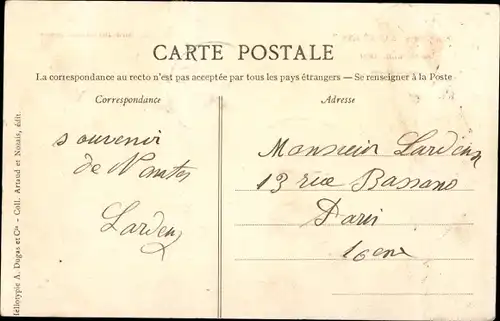 CARTE POSTALE
La correspondance au recto n'est pas acceptée par tous les pays étrangers — Se renseigner à la Poste
Correspondance
souvenir
de Nantes
Larden
Adresse
Monsieur Larden
13 rue Bassano
Paris
16eme
Héliotypie A. Dugas et Cie - Coll. Artaud et Nozais, édit.